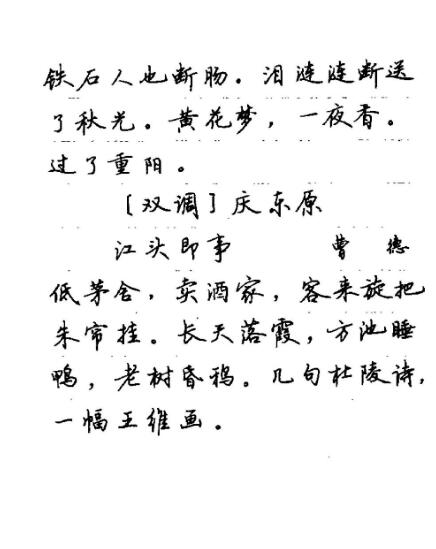 铁石人也断肠。泪涟涟断送
了秋光。黄花梦，一夜香。
过了重阳。
［双调］庆东原
江头即事 曹德
低茅舍，卖酒家，客来旋把
朱帘挂。长天落霞，方池睡
鸭，老树昏鸦。几句杜陵诗，
一幅王维画。